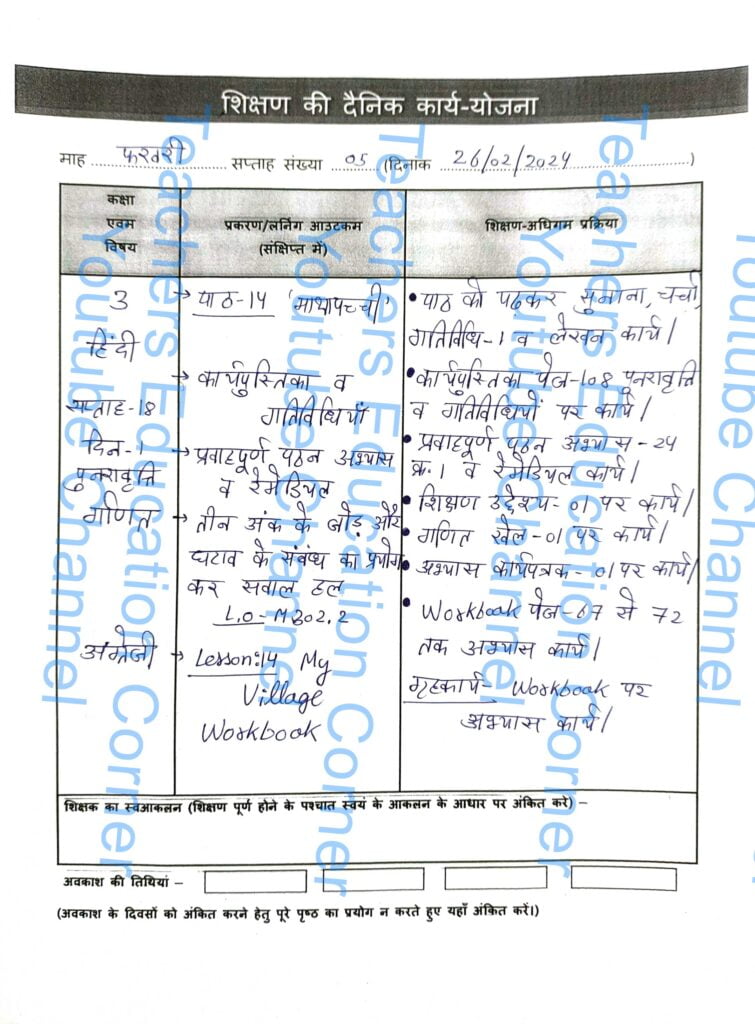 शिक्षण की दैनिक कार्य-योजना
माह फरवरी सप्ताह संख्या 05 (दिनांक 26/02/2024)
कक्षा
एवम
विषय
प्रकरण/लर्निंग आउटकम
(संक्षिप्त में)
शिक्षण-अधिगम प्रक्रिया
3
हिंदी
सप्ताह-18
दिन-1
पुनरावृत्ति
→ पाठ-14 'माथापच्ची'
→ कार्यपुस्तिका व
गतिविधियाँ
→ प्रवाहपूर्ण पठन अभ्यास
व रेमेडियल
• पाठ को पढ़कर सुनाना, चर्चा,
गतिविधि-1 व लेखन कार्य।
• कार्यपुस्तिका पेज-108 पुनरावृत्ति
व गतिविधियों पर कार्य।
• प्रवाहपूर्ण पठन अभ्यास-24
क्र.1 व रेमेडियल कार्य।
गणित
→ तीन अंक के जोड़ और
घटाव के संबंध का प्रयोग
कर सवाल हल
L.O-M302.2
• शिक्षण उद्देश्य-01 पर कार्य।
• गणित खेल-01 पर कार्य।
• अभ्यास कार्यपत्रक-01 पर कार्य।
अंग्रेजी
→ Lesson:14 My
Village
Workbook
• Workbook पेज-67 से 72
तक अभ्यास कार्य।
गृहकार्य- Workbook पर
अभ्यास कार्य।
शिक्षक का स्वआकलन (शिक्षण पूर्ण होने के पश्चात स्वयं के आकलन के आधार पर अंकित करे) –
अवकाश की तिथियां –
(अवकाश के दिवसों को अंकित करने हेतु पूरे पृष्ठ का प्रयोग न करते हुए यहाँ अंकित करें।)
Teachers Education Corner
Youtube Channel
Teachers Education Corner
Youtube Channel
Teachers Education Corner
Youtube Channel